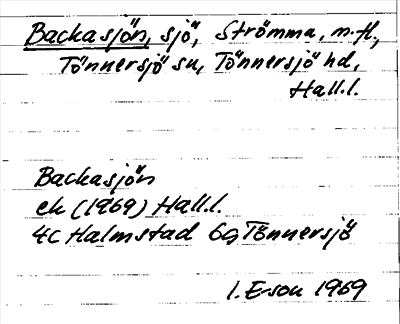 Backasjön, sjö, Strömma, m.fl.,
Tönnersjö sn, Tönnersjö hd,
Hall.l.
Backasjön
ek (1969) Hall.l.
4C Halmstad 6g Tönnersjö
I. E-son 1969